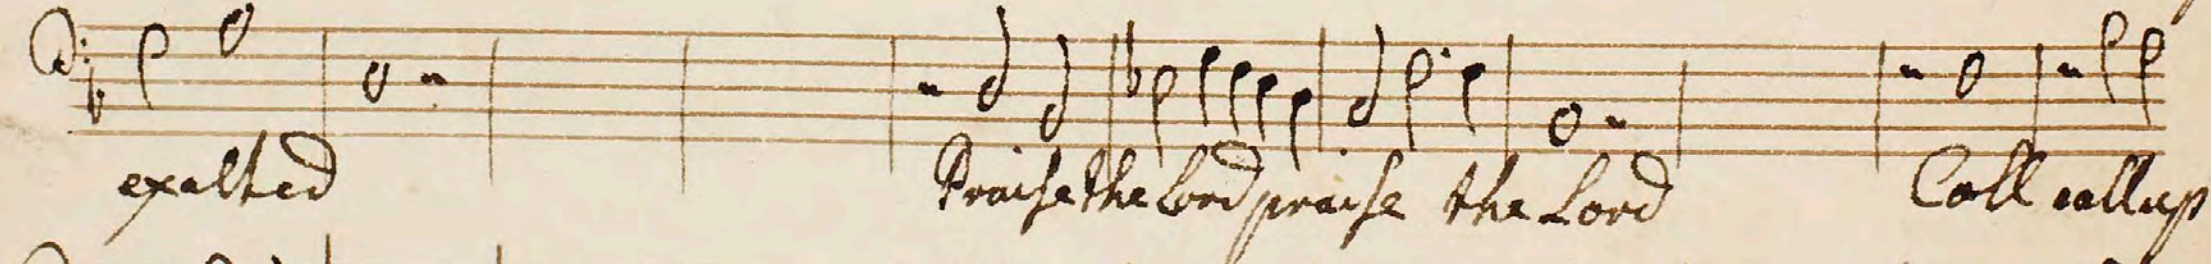 exalted Praise the Lord praise the Lord Call call up